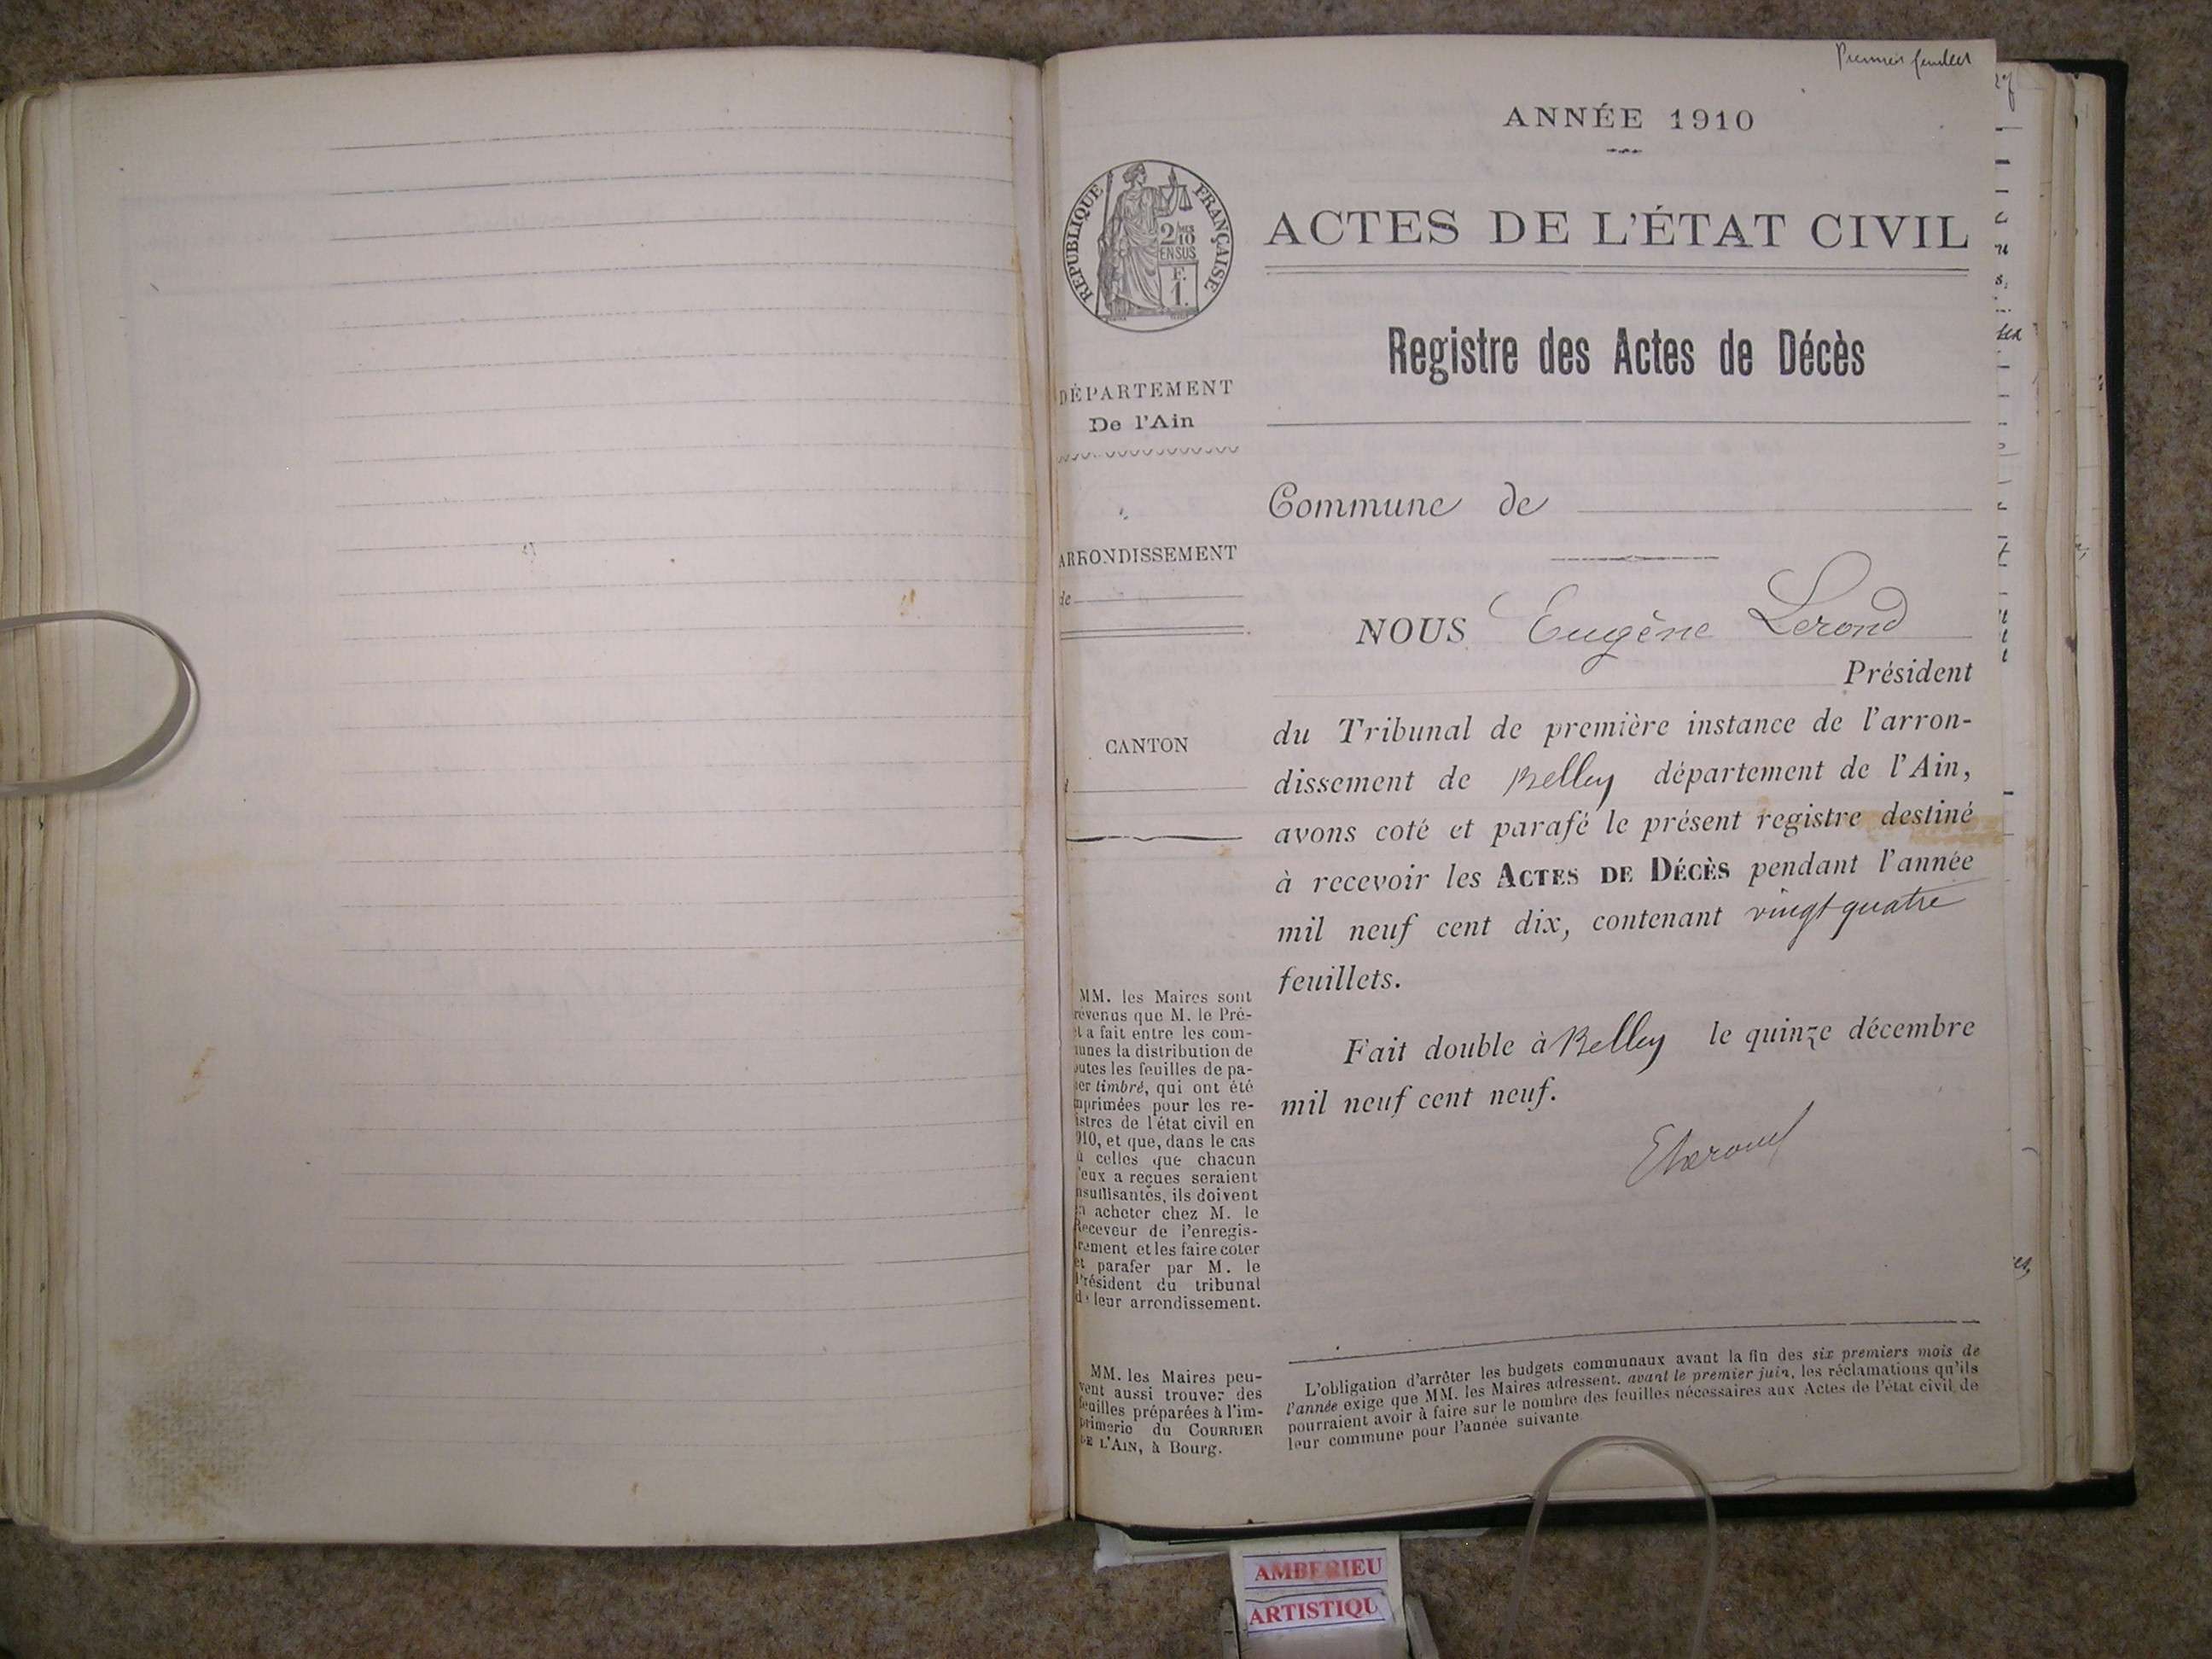 Premier feuillet
ANNÉE 1910
RÉPUBLIQUE FRANÇAISE
2/10
EN SUS
F.
1.
ACTES DE L'ÉTAT CIVIL
Registre des Actes de Décès
DÉPARTEMENT
De l'Ain
ARRONDISSEMENT
de
CANTON
MM. les Maires sont
révenus que M. le Pré-
et a fait entre les com-
munes la distribution de
outes les feuilles de pa-
ier timbré, qui ont été
mprimées pour les re-
istres de l'état civil en
910, et que, dans le cas
ù celles que chacun
'eux a reçues seraient
nsuffisantes, ils doivent
n acheter chez M. le
Receveur de l'enregis-
trement et les faire coter
et parafer par M. le
Président du tribunal
de leur arrondissement.
MM. les Maires peu-
vent aussi trouver des
feuilles préparées à l'im-
primerie du COURRIER
DE L'AIN, à Bourg.
Commune de
NOUS Eugène Lerond
Président
du Tribunal de première instance de l'arron-
dissement de Belley département de l'Ain,
avons coté et parafé le présent registre destiné
à recevoir les ACTES DE DÉCÈS pendant l'année
mil neuf cent dix, contenant vingt quatre
feuillets.
Fait double à Belley le quinze décembre
mil neuf cent neuf.
ELerond
L'obligation d'arrêter les budgets communaux avant la fin des six premiers mois de
l'année exige que MM. les Maires adressent, avant le premier juin, les réclamations qu'ils
pourraient avoir à faire sur le nombre des feuilles nécessaires aux Actes de l'état civil de
leur commune pour l'année suivante.
AMBERIEU
ARTISTIQU